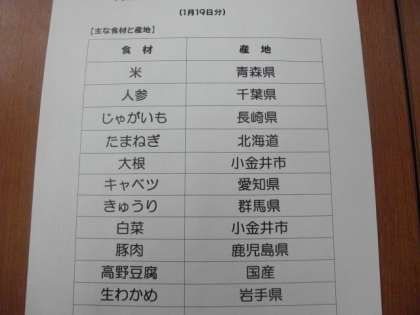 (1月19日分)
【主な食材と産地】
食 材 産 地
米 青森県
人参 千葉県
じゃがいも 長崎県
たまねぎ 北海道
大根 小金井市
キャベツ 愛知県
きゅうり 群馬県
白菜 小金井市
豚肉 鹿児島県
高野豆腐 国産
生わかめ 岩手県